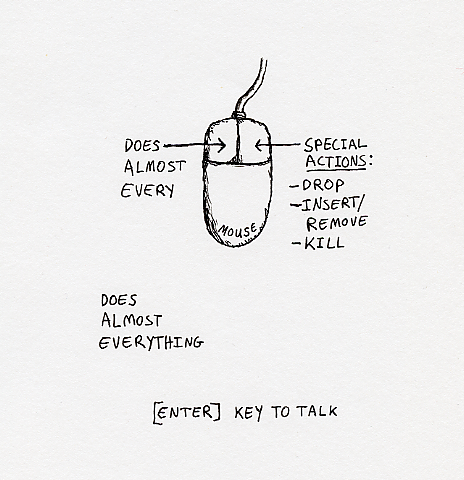 DOES
ALMOST
EVERY
SPECIAL
ACTIONS:
-DROP
-INSERT/
REMOVE
-KILL
MOUSE
DOES
ALMOST
EVERYTHING
[ENTER] KEY TO TALK